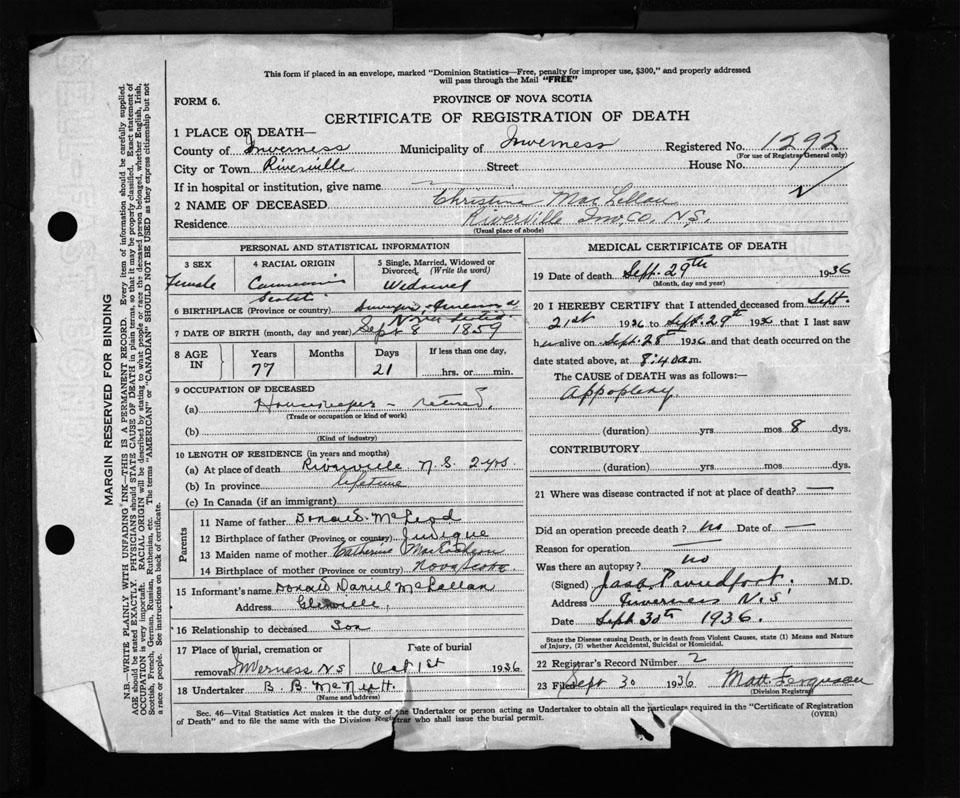 This form if placed in an envelope, marked "Dominion Statistics—Free, penalty for improper use, $300," and properly addressed
will pass through the Mail "FREE"
FORM 6.
PROVINCE OF NOVA SCOTIA
CERTIFICATE OF REGISTRATION OF DEATH
1 PLACE OF DEATH—
County of Inverness Municipality of Inverness Registered No. 1292
(For use of Registrar General only)
City or Town Riverville Street House No.
If in hospital or institution, give name
2 NAME OF DECEASED Christina MacLellan
Residence Riverville Inv. Co. N.S.
(Usual place of abode)
PERSONAL AND STATISTICAL INFORMATION
3 SEX 4 RACIAL ORIGIN 5 Single, Married, Widowed or
Divorced, (Write the word)
Female Scotch
6 BIRTHPLACE (Province or country)
Nova Scotia
7 DATE OF BIRTH (month, day and year) Sept 8 1859
8 AGE IN Years Months Days If less than one day,
77 21 hrs. or min.
9 OCCUPATION OF DECEASED
(a) Housekeeper – retired.
(Trade or occupation or kind of work)
(b)
(Kind of industry)
10 LENGTH OF RESIDENCE (in years and months)
(a) At place of death Riverville N.S. 2 yrs.
(b) In province lifetime
(c) In Canada (if an immigrant)
Parents
11 Name of father Donald McLeod
12 Birthplace of father (Province or country) Judique
13 Maiden name of mother Catherine
14 Birthplace of mother (Province or country) Nova Scotia
15 Informant's name Donald Daniel McLellan
Address Glenville,
16 Relationship to deceased Son
17 Place of burial, cremation or Date of burial
removal Inverness N S Oct 1st 1936
18 Undertaker B. B. McNutt.
(Name and address)
MEDICAL CERTIFICATE OF DEATH
19 Date of death Sept. 29th 1936
(Month, day and year)
20 I HEREBY CERTIFY that I attended deceased from Sept.
21st 1936 to Sept. 29th 1936 that I last saw
her alive on Sept. 28th 1936 and that death occurred on the
date stated above, at 8:40 a.m.
The CAUSE OF DEATH was as follows:—
Appoplexy.
(duration) yrs mos 8 dys.
CONTRIBUTORY
(duration) yrs. mos. dys.
21 Where was disease contracted if not at place of death?
Did an operation precede death? no Date of —
Reason for operation —
Was there an autopsy? no
(Signed) M.D.
Address Inverness N.S.
Date Sept 30th 1936.
State the Disease causing Death, or in death from Violent Causes, state (1) Means and Nature
of Injury, (2) whether Accidental, Suicidal or Homicidal.
22 Registrar's Record Number 2
23 Filed Sept 30 1936 Matt Ferguson
(Division Registrar)
Sec. 46—Vital Statistics Act makes it the duty of the Undertaker or person acting as Undertaker to obtain all the particulars required in the "Certificate of Registration
of Death" and to file the same with the Division Registrar who shall issue the burial permit.
(OVER)
MARGIN RESERVED FOR BINDING
N.B.—WRITE PLAINLY WITH UNFADING INK—THIS IS A PERMANENT RECORD. Every item of information should be carefully supplied.
AGE should be stated EXACTLY. PHYSICIANS should STATE CAUSE OF DEATH in plain terms, so that it may be properly classified. Exact statement of
OCCUPATION is very important. RACIAL ORIGIN will be described by stating to what people or race the deceased person belonged, whether English, Irish,
Scottish, French, German, Russian, Ruthenian, etc. The terms "AMERICAN" or "CANADIAN" SHOULD NOT BE USED as they express citizenship but not
a race or people. See instructions on back of certificate.